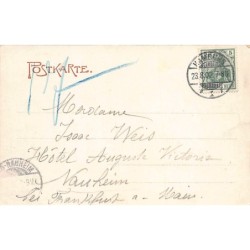 POSTKARTE.
5
Madame
Isaac Weis
Hôtel Auguste Victoria
Nauheim
bei Frankfurt a. Main
NAUHEIM